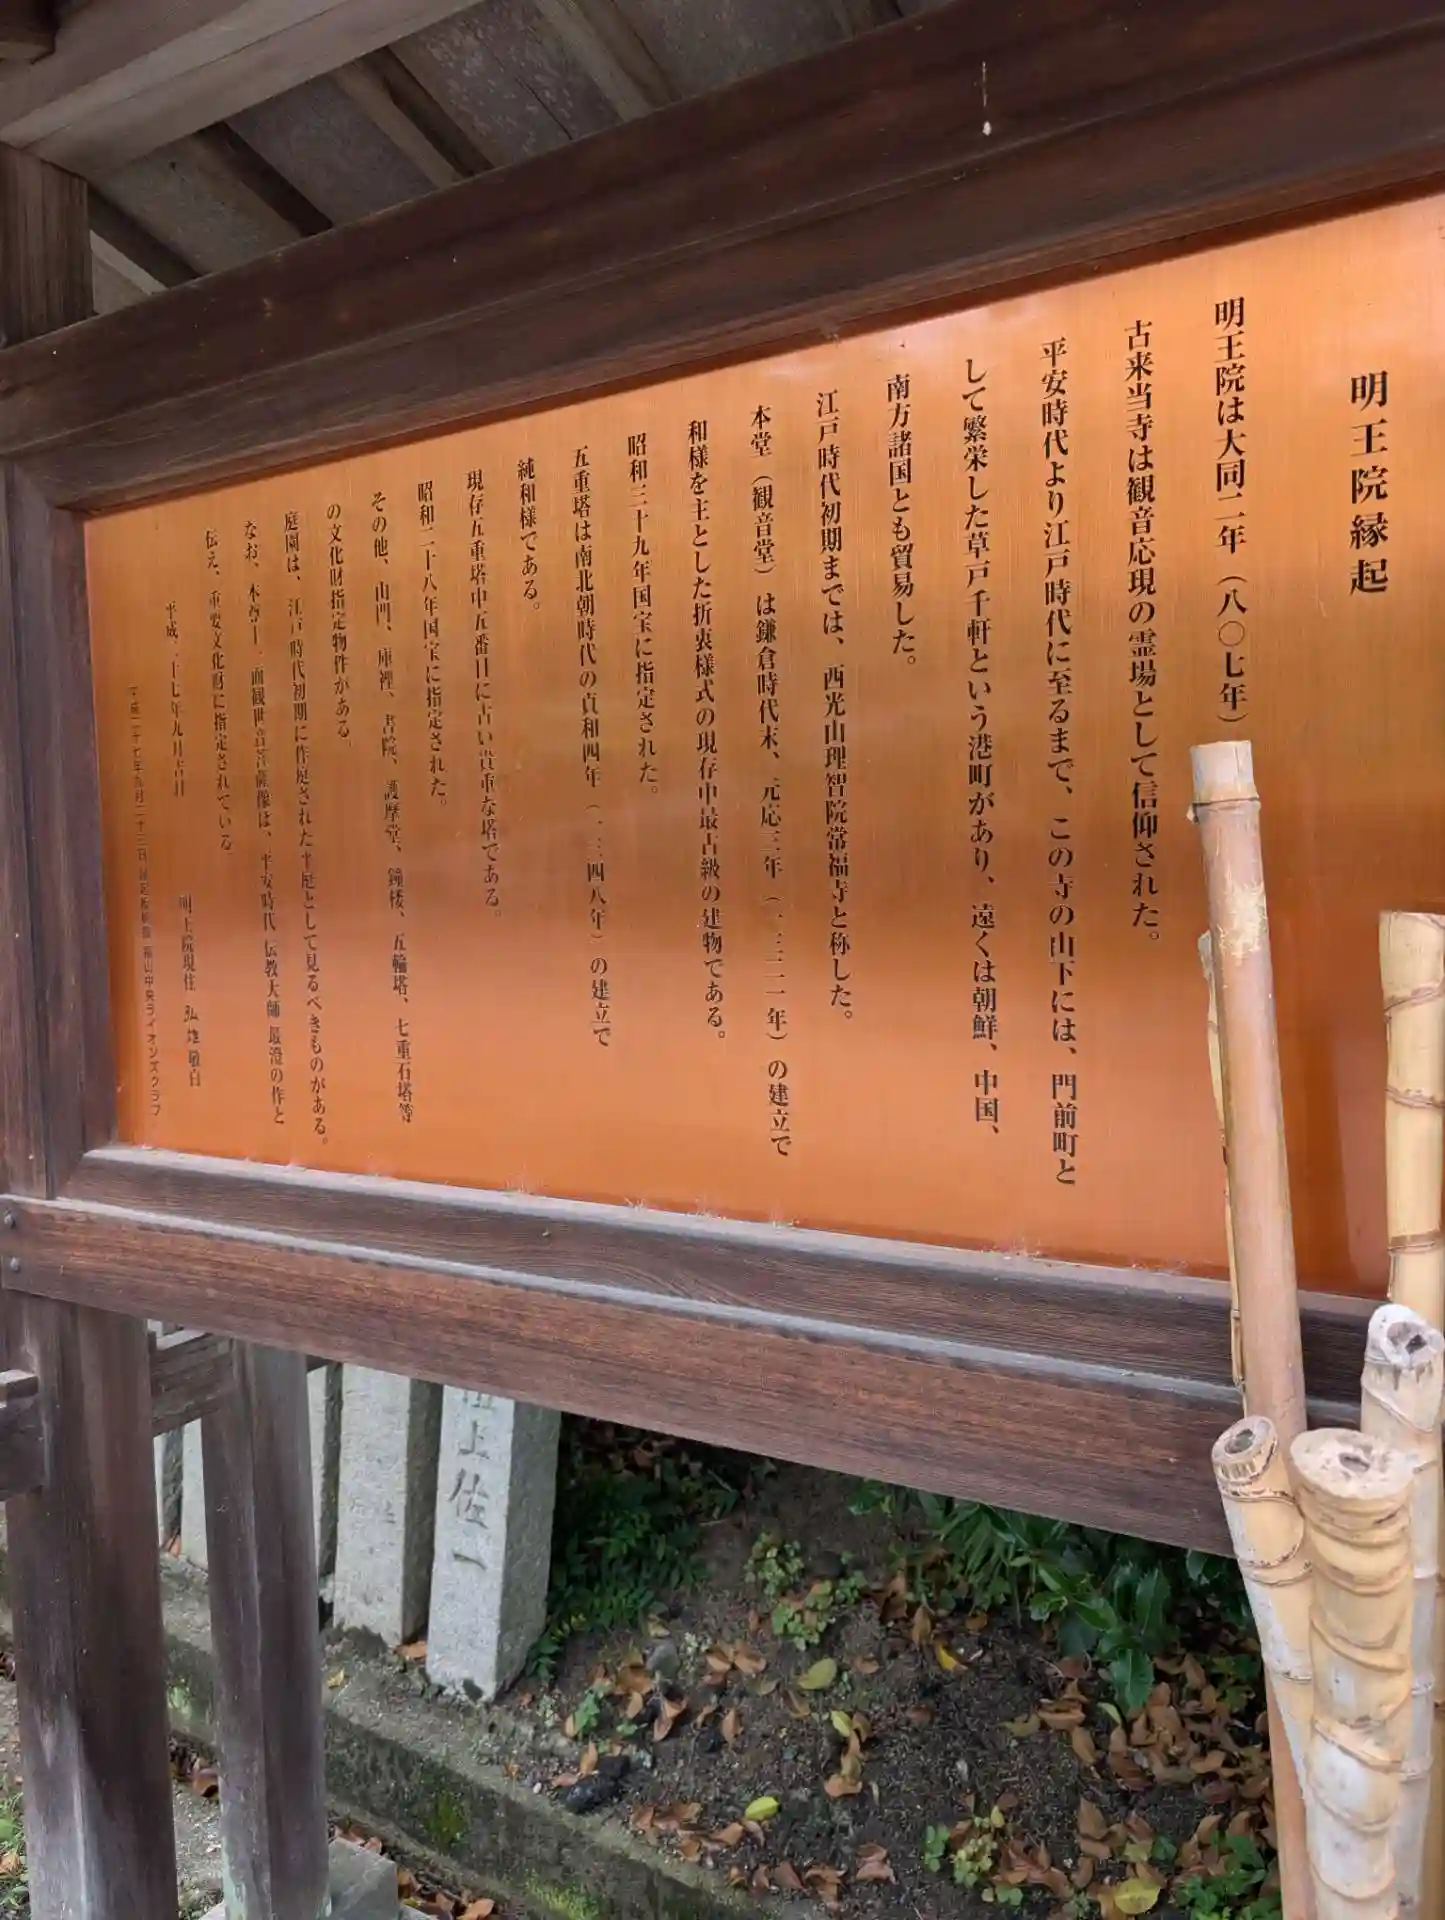 明王院縁起
明王院は大同二年（八〇七年）
古来当寺は観音応現の霊場として信仰された。
平安時代より江戸時代に至るまで、この寺の山下には、門前町と
して繁栄した草戸千軒という港町があり、遠くは朝鮮、中国、
南方諸国とも貿易した。
江戸時代初期までは、西光山理智院常福寺と称した。
本堂（観音堂）は鎌倉時代末、元応三年（一三二一年）の建立で
和様を主とした折衷様式の現存中最古級の建物である。
昭和三十九年国宝に指定された。
五重塔は南北朝時代の貞和四年（一三四八年）の建立で
純和様である。
現存五重塔中五番目に古い貴重な塔である。
昭和二十八年国宝に指定された。
その他、山門、庫裡、書院、護摩堂、鐘楼、五輪塔、七重石塔等
の文化財指定物件がある。
庭園は、江戸時代初期に作庭された平庭として見るべきものがある。
なお、本尊十一面観世音菩薩像は、平安時代 伝教大師 最澄の作と
伝え、重要文化財に指定されている。
平成二十七年九月吉日
明王院現住 弘雄 敬白
平成二十七年九月二十三日 福山中央ライオンズクラブ
上佐一